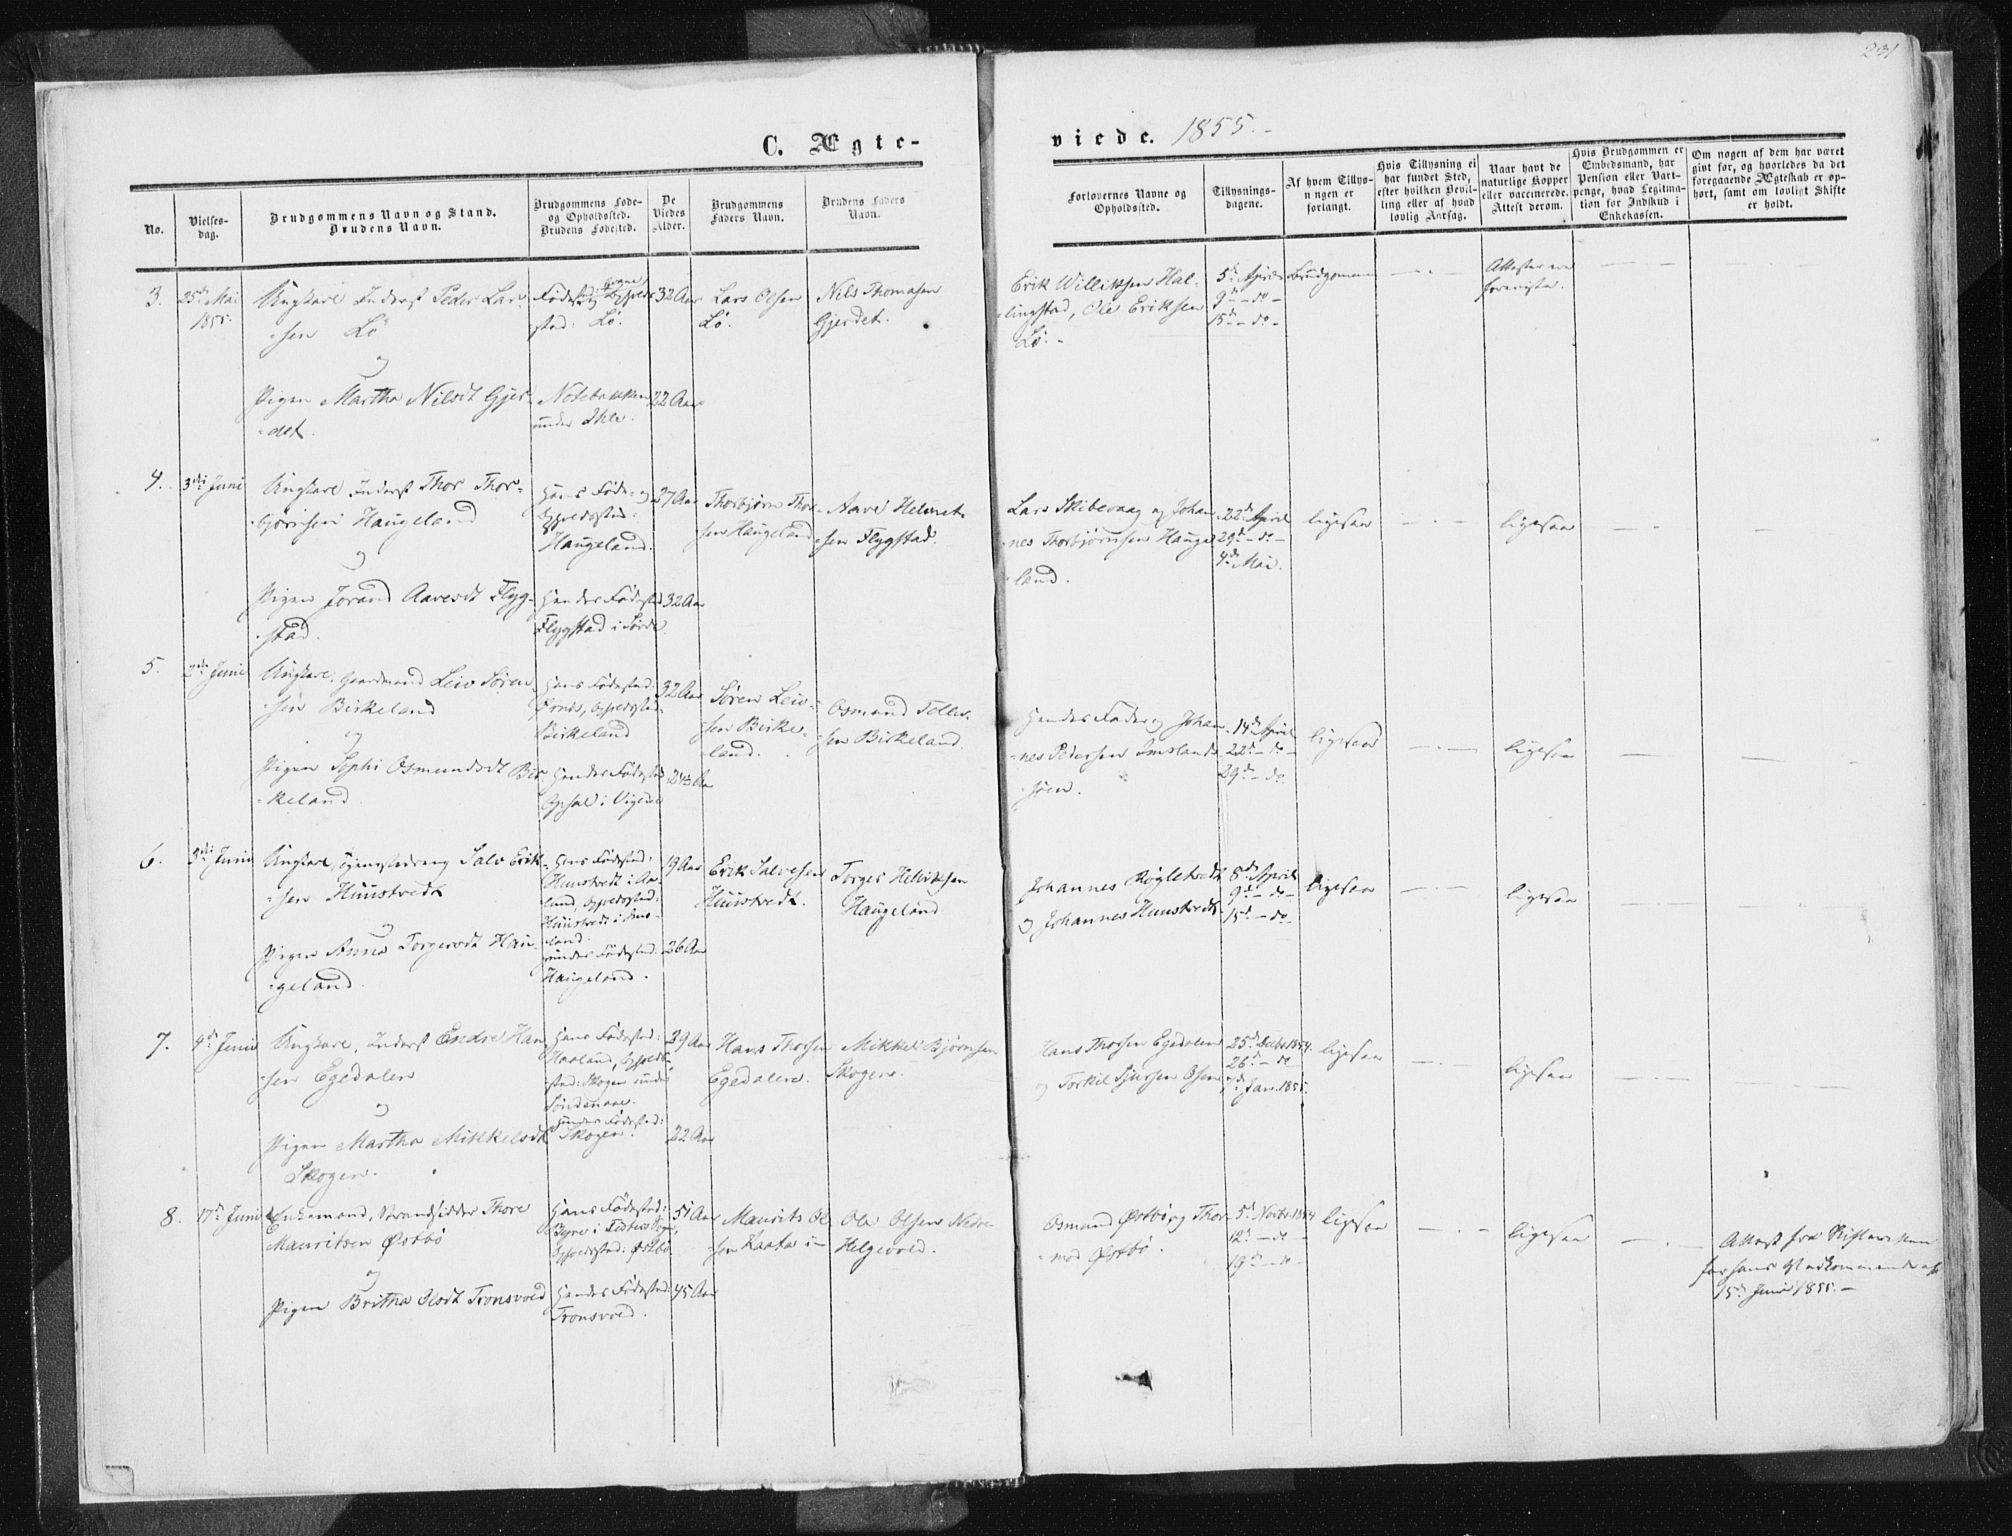 231
C. Ægte-
viede. 1855.-
No.
Vielses-
dag.
Brudgommens Navn og Stand.
Brudens Navn.
Brudgommens Føde-
og Opholdssted.
Brudens Fødested.
De
Viedes
Alder.
Brudgommens
Faders Navn.
Brudens Faders
Navn.
Forlovernes Navne og
Opholdssted.
Tillysnings-
dagene.
Af hvem Tillys-
ningen er
forlangt.
Hvis Tillysning ei
har fundet Sted,
efter hvilken Bevil-
ling eller af hvad
lovlig Aarsag.
Naar havt de
naturlige Kopper
eller vaccinerede.
Attest derom.
Hvis Brudgommen er
Embedsmand, har
Pension eller Vart-
penge, hvad Legitima-
tion for Indskud i
Enkekassen.
Om nogen af dem har været
gift før, og hvorledes da det
foregaaende Ægteskab er op-
hørt, samt om lovligt Skifte
er holdt.
3.
25de Mai
1855.
Ungkarl Inderst Peder Lar-
-sen Lø
og
Pigen Martha Nilsdt Gjer-
-det.
sted: Lø.
Notebakken
under Ihle.
32 Aar
22 Aar
Lars Olsen
Lø.
Nils Thomasen
Gjerdet.
Erik Williksen Hal-
-lingstad, Ole Eriksen
Lø.-
5te April
9de - do -
15de - do -
Brudgommen
Attester ere
foreviste.
4.
3die Juni
Ungkarl Inderst Thor Thor-
-bjørnsen Haugeland
og
Pigen Jorand Aaresdt Flyg-
-stad.
Hans Føde- og
Opholdssted:
Haugeland.
Hendes Fødested
Flygstad i Førde
27 Aar
32 Aar
Thorbjørn Thor-
-sen Haugeland
Aave Helmik-
-sen Flygstad.
Lars Skibevaag og Johan-
-nes Thorbjørnsen Hauge-
-land.
22de April
29de - do -
4de Mai.
ligesaa
ligesaa
5.
2den Juni
Ungkarl, Gaardmand Leiv Søren-
-sen Birkeland
og
Pigen Sophi Osmundsdt Bir-
-keland
Hans Fødested:
Ørnes, Opholdssted
Birkeland
Hendes Fødested
Opsal i Vigedal
32 Aar
24 Aar
Søren Leiv-
-sen Birke-
-land.
Osmund Tolles-
-sen Birkeland.
Hendes Fader og Johan-
-nes Pedersen Imslands-
-søen.
14de April
22de - do -
29de - do.
ligesaa
ligesaa
6.
3die Juni
Ungkarl, Tjenestedreng Salve Erik-
-sen Huustvedt
og
Pigen Anna Torgersdt Hau-
-geland.
Hans Fødested:
Huustvedt i Aa-
-land, Opholdssted:
Huustvedt i Ims-
-land.
Hendes Fødested:
Haugeland.
19 Aar
26 Aar
Erik Salvesen
Huustvedt.
Torger Helviksen
Haugeland
Johannes Røgletvedt
og Johannes Huustvedt
8de April
9de - do -
15de - do -
ligesaa
ligesaa
7.
4de Juni
Ungkarl, Inderst Endre Han-
-sen Egedalen
og
Pigen Martha Mikkelsdt
Skogen.
Hans Fødested:
Haaland, Opholds-
-sted: Skogen under
Søndenaae.
Hendes Fødested:
Skogen.
29 Aar
22 Aar
Hans Thorsen
Egedalen.
Mikkel Bjørnsen
Skogen.
Hans Thorsen Egedalen
og Torkil Sjursen Osen
25de Decbr. 1854.
26de - do
7de Jan. 1855.
ligesaa
ligesaa
8.
17de Juni
Enkemand, Strandsidder Thore
Mauritsen Østbø
og
Pigen Britha Olsdt Tronsvold
Hans Fødested:
Opholdssted: Østbø
Hendes Fødested:
Tronsvold.
51 Aar
45 Aar
Maurits Ol-
-sen Kaata i-
Ole Olsen Nedre-
Helgevold.
Osmund Østbø og Thor-
-mod Østbø.
5te Novbr. 1854
12te - do -
19de - do -
ligesaa
ligesaa
Attest fra Skifteretten
for hans Vedkommende af
15de Juni 1855.-